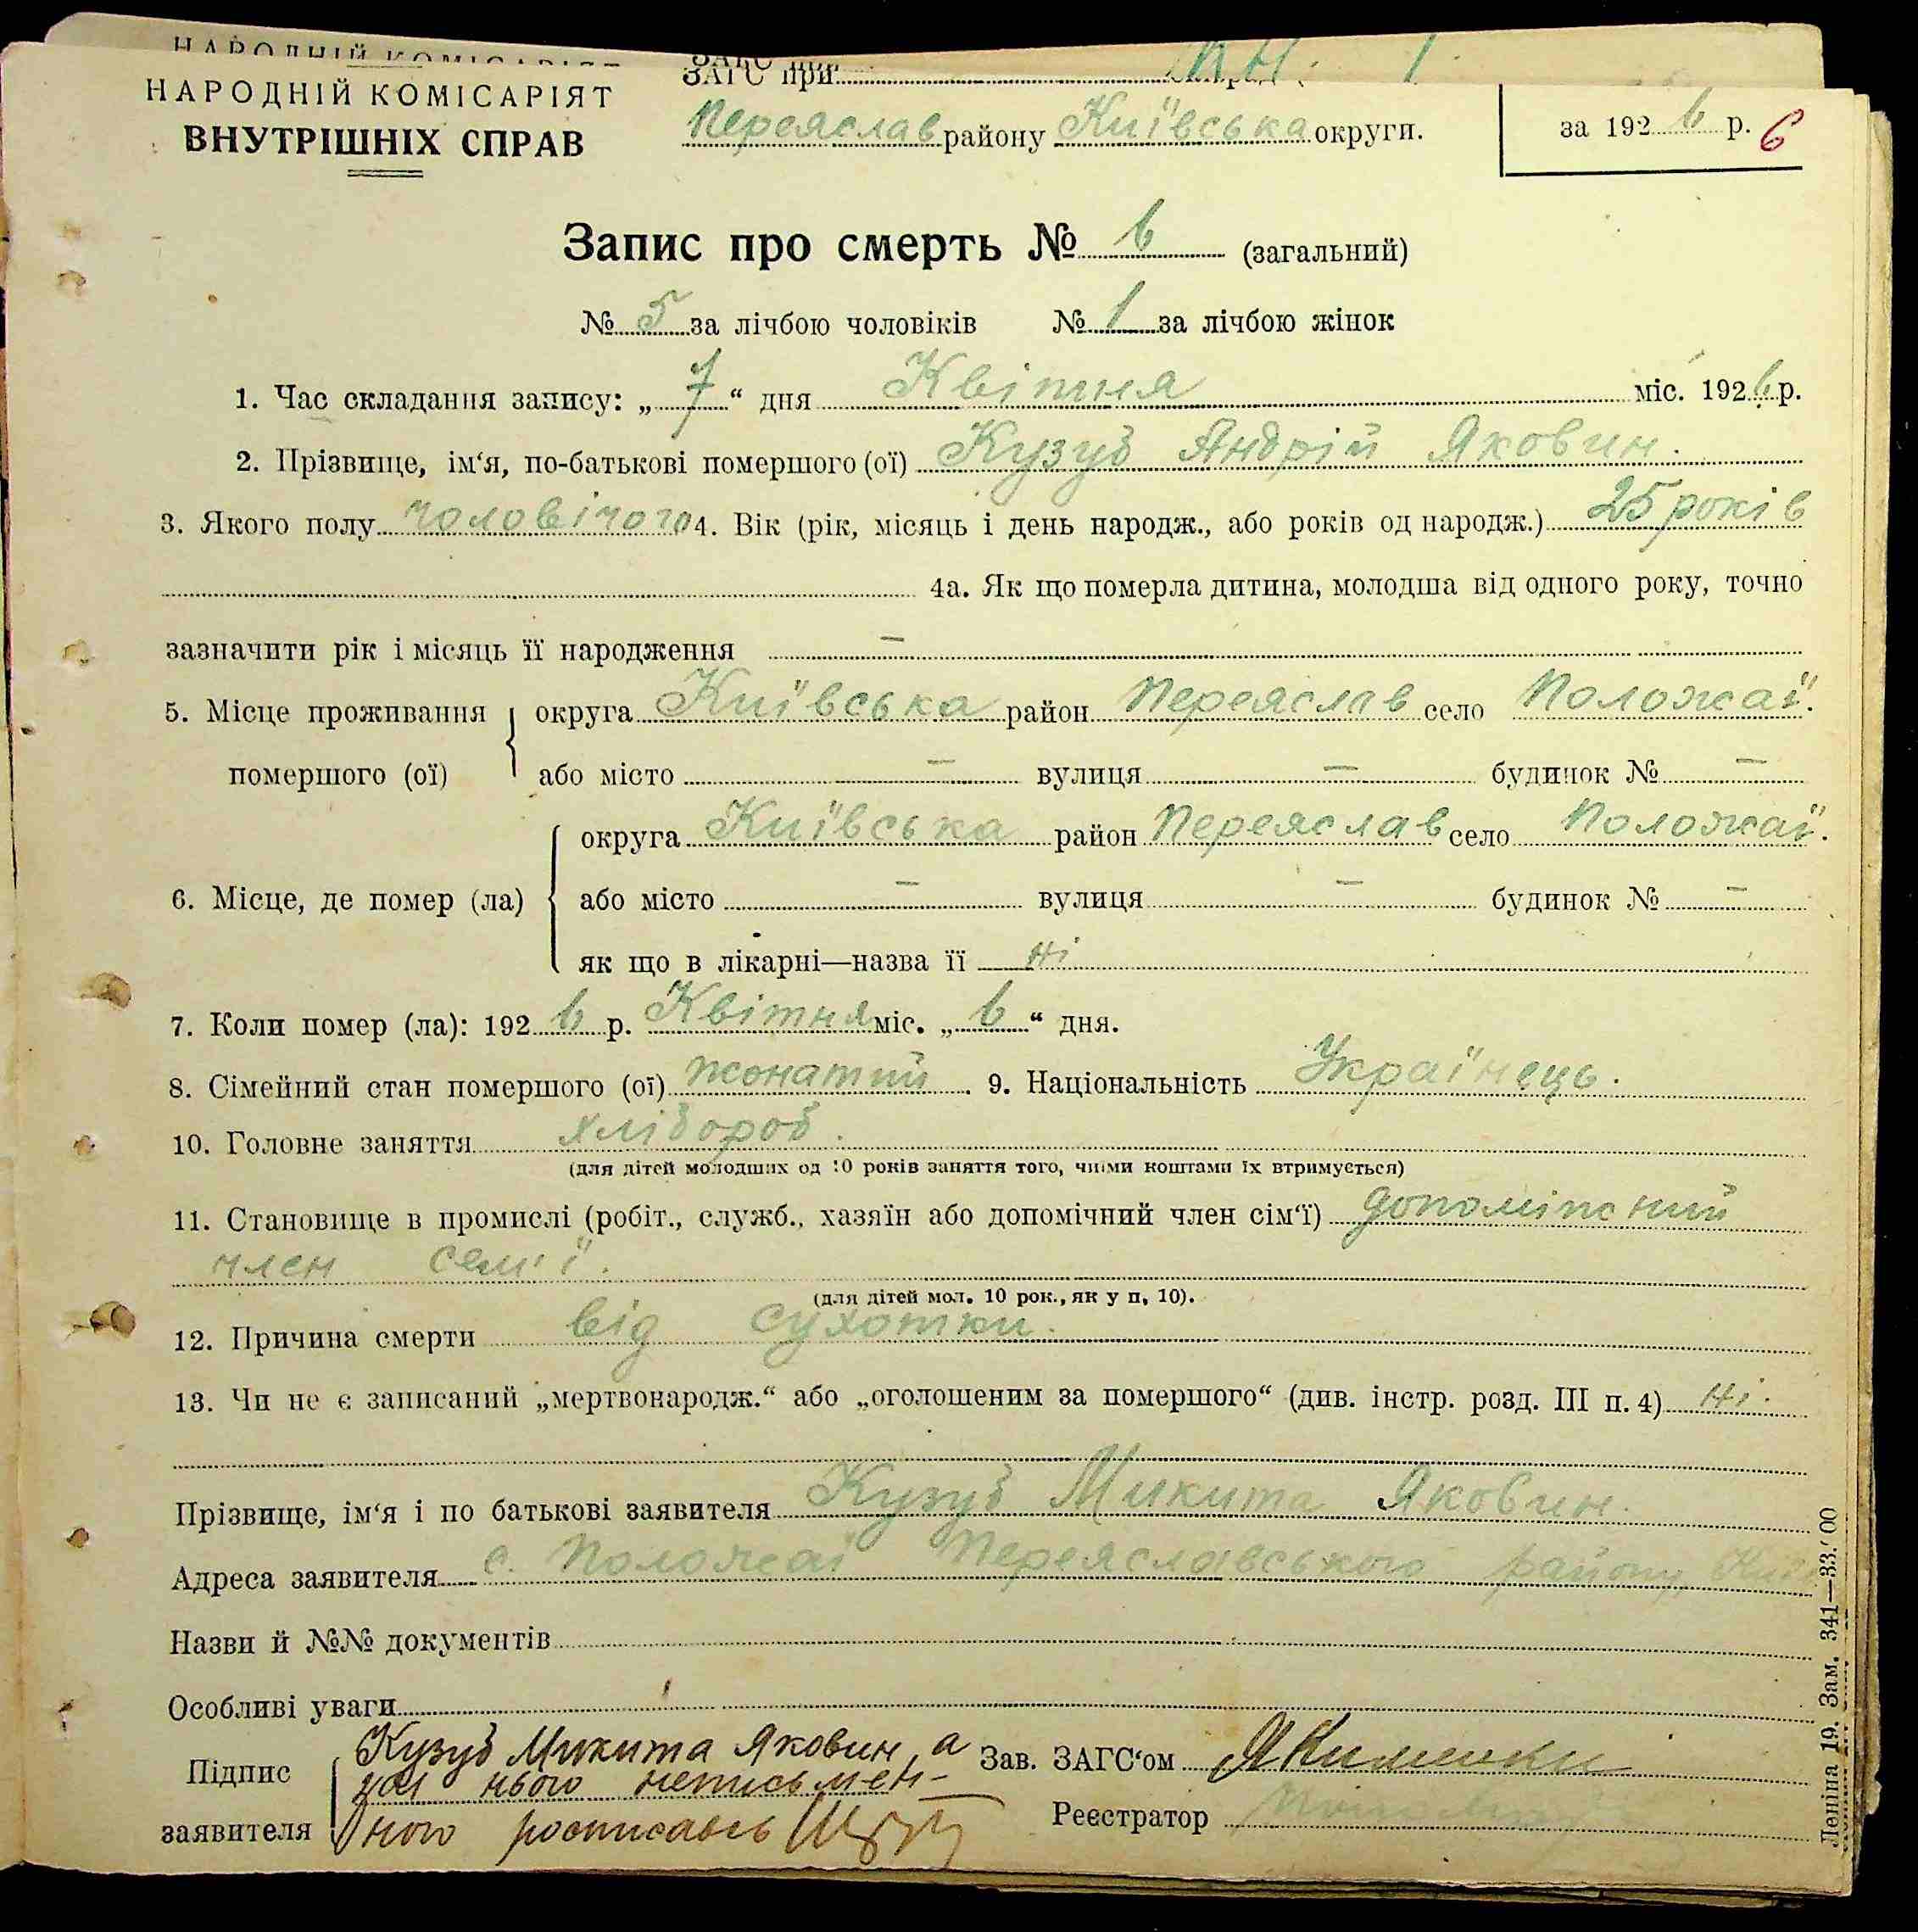 НАРОДНІЙ КОМІСАРІЯТ
ЗАГС при
НАРОДНІЙ КОМІСАРІЯТ
ВНУТРІШНІХ СПРАВ
Переяслав району Київська округи.
за 1926 р. 6
Запис про смерть № 6 (загальний)
№ 5 за лічбою чоловіків № 1 за лічбою жінок
1. Час складання запису: „7“ дня Квітня міс. 1926 р.
2. Прізвище, ім‘я, по-батькові помершого (ої) Кузуб Андрій Яковин.
3. Якого полу чоловічого 4. Вік (рік, місяць і день народж., або років од народж.) 25 років
4а. Як що померла дитина, молодша від одного року, точно
зазначити рік і місяць її народження —
5. Місце проживання округа Київська район Переяслав село Положаї.
помершого (ої) або місто — вулиця — будинок № —
округа Київська район Переяслав село Положаї.
6. Місце, де помер (ла) або місто — вулиця — будинок № —
як що в лікарні—назва її ні
7. Коли помер (ла): 1926 р. Квітня міс. „6“ дня.
8. Сімейний стан помершого (ої) жонатий. 9. Національність Українець.
10. Головне заняття хлібороб.
(для дітей молодших од 10 років заняття того, чиїми коштами їх втримується)
11. Становище в промислі (робіт., служб., хазяїн або допомічний член сім‘ї) допомічний
член сем'ї.
(для дітей мол. 10 рок., як у п. 10).
12. Причина смерти від сухотки.
13. Чи не є записаний „мертвонародж.“ або „оголошеним за помершого“ (див. інстр. розд. III п. 4) ні.
Прізвище, ім‘я і по батькові заявителя Кузуб Микита Яковин.
Адреса заявителя с. Положаї Переяславського району,
Назви й №№ документів
Особливі уваги
Підпис заявителя Кузуб Микита Яковин, а
нього неписьмен-
ного росписавсь
Зав. ЗАГС‘ом
Реєстратор
Леніна 19. Зам. 341—33.